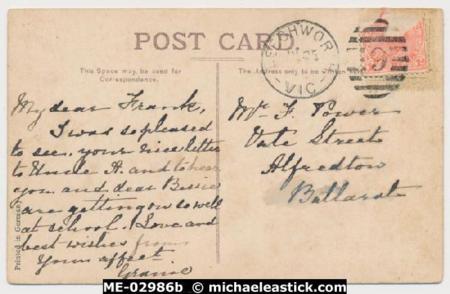 POST CARD
This Space may be used for
Correspondence.
The Address only to be Written
BEECHWORTH
VIC
My dear Frank,
I was so pleased
to see your nice letter
to Uncle A. and to hear
you and dear Bessie
are getting on so well
at school. Love and
best wishes from
Yours affect.
Grannie
Mr F. Power
Vale Street
Alfredton
Ballarat
Printed in Germany
ME-02986b © michaeleastick.com